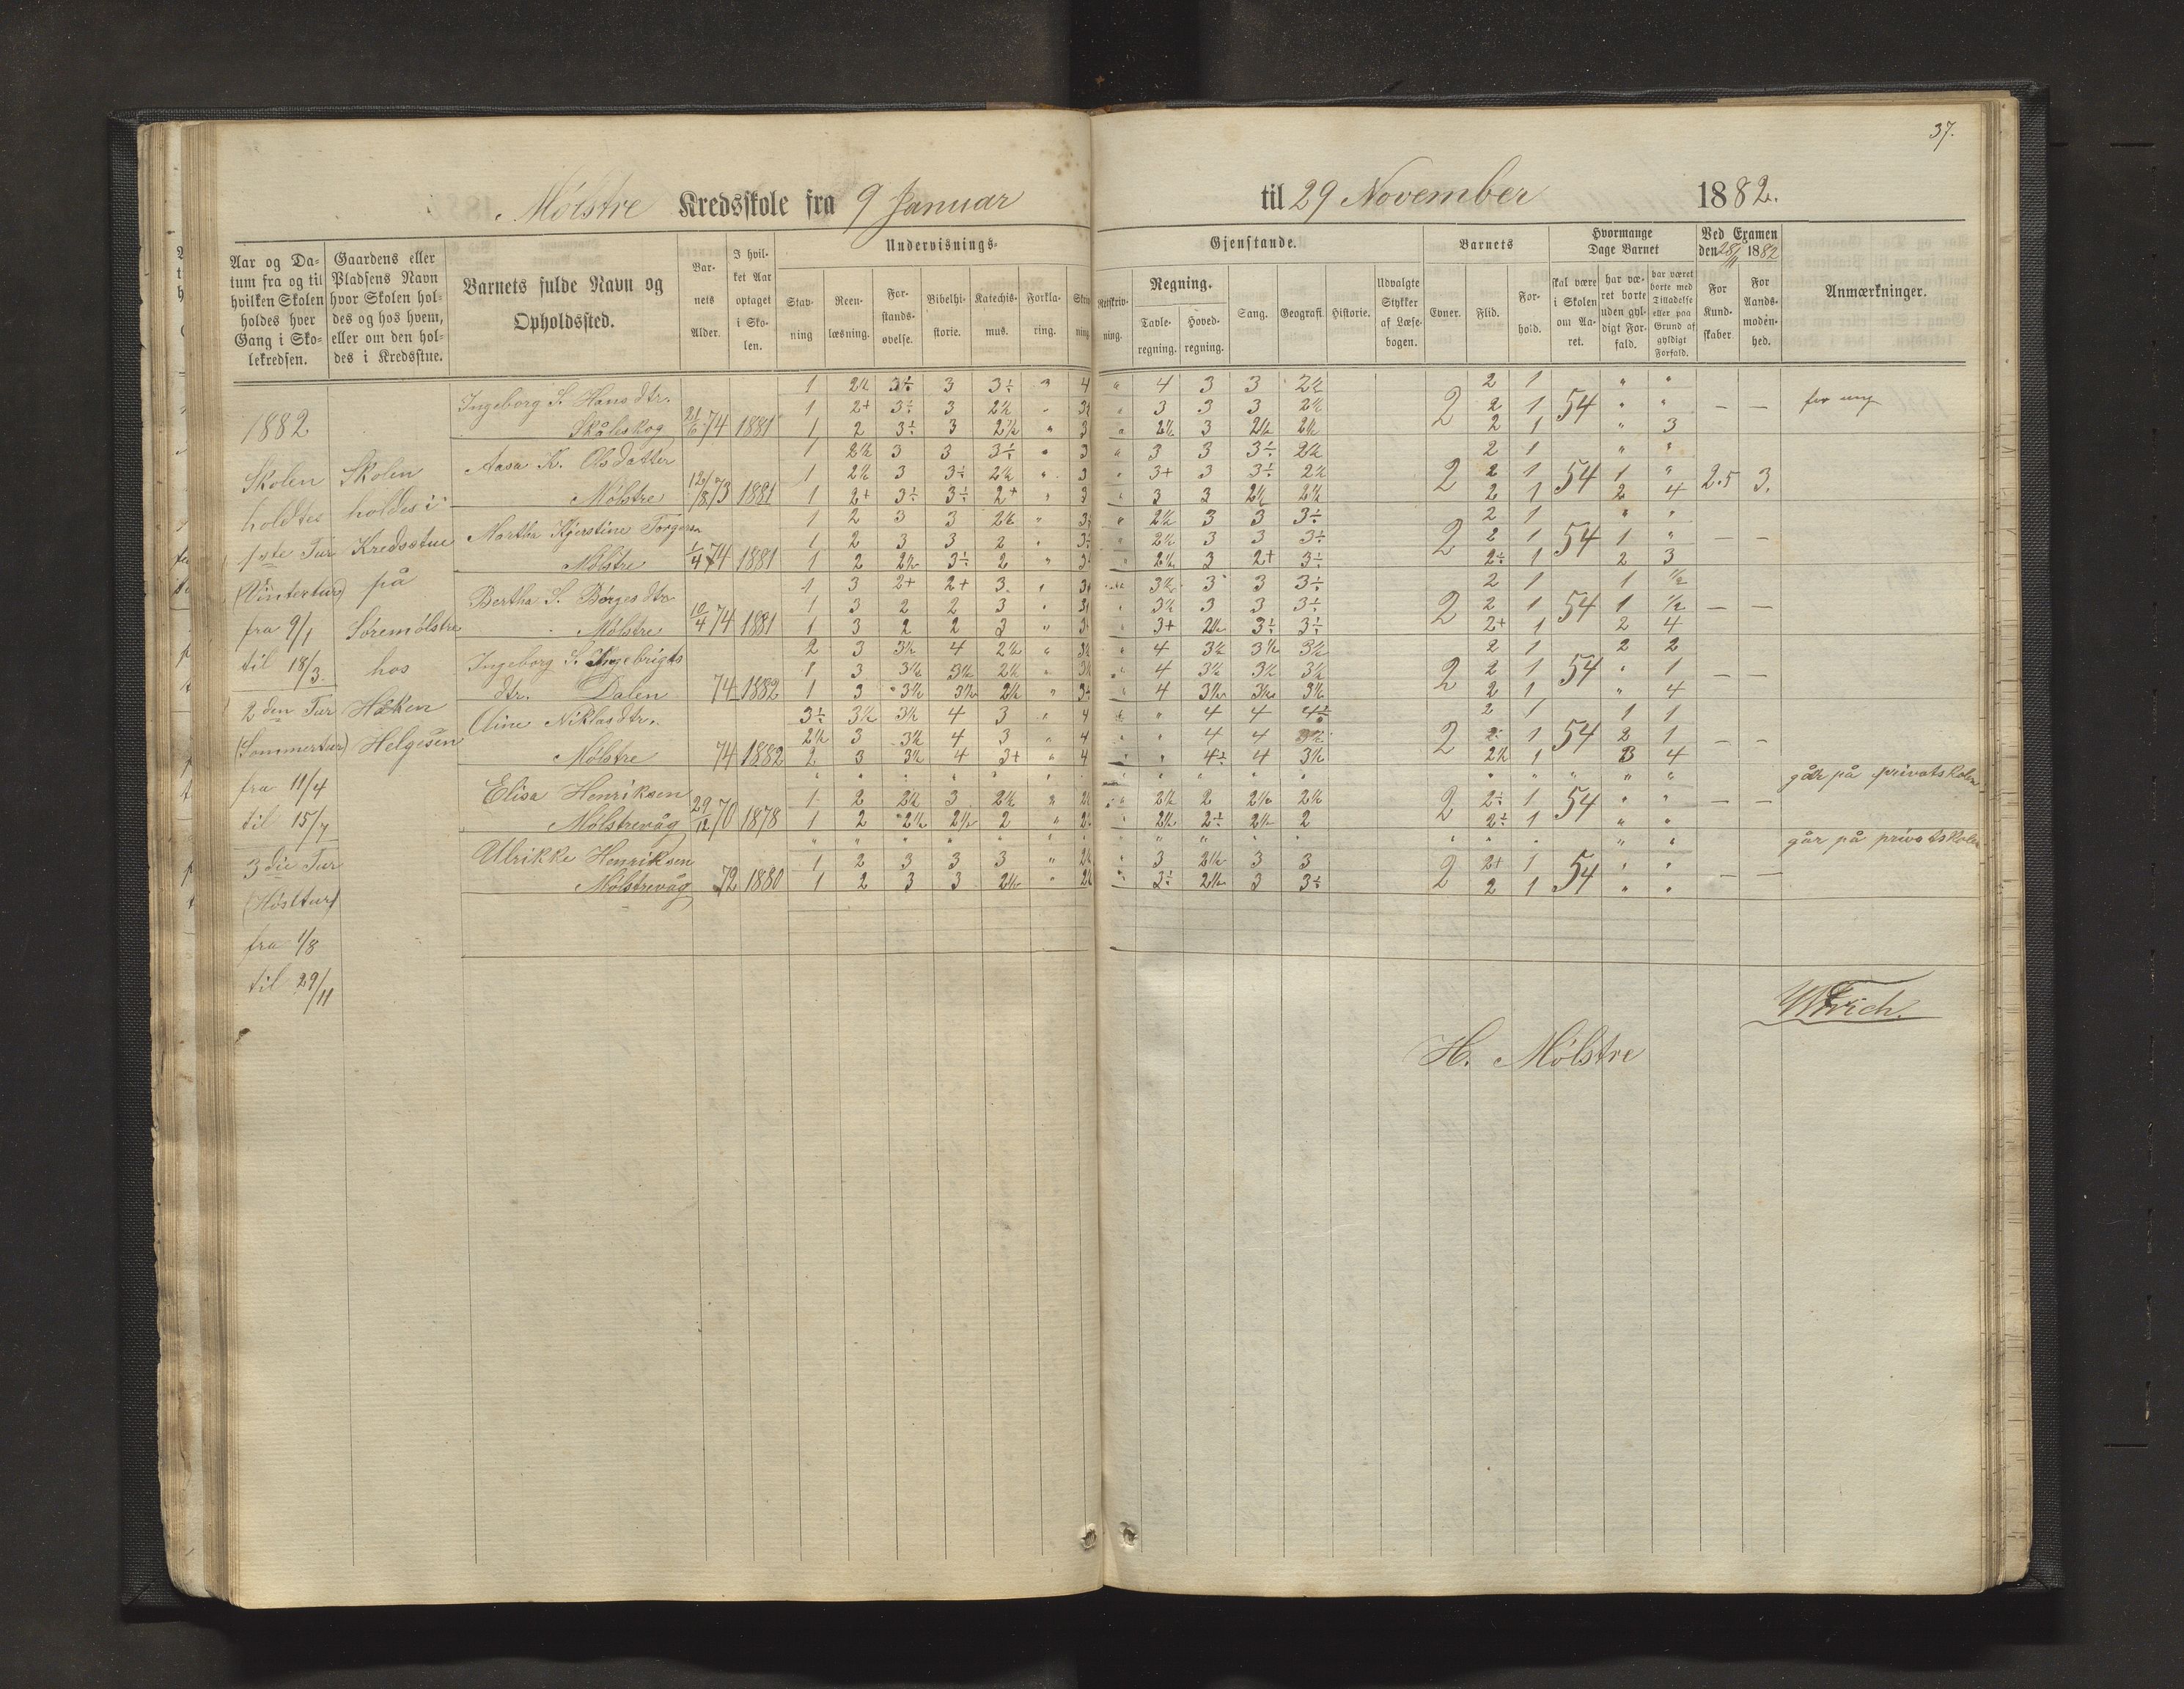 37.
Mölstre Kredsskole fra 9 Januar til 29 November 1882.
Aar og Da- tum fra og til hvilken Skolen holdes hver Gang i Sko- lekredsen.
Gaardens eller Pladsens Navn hvor Skolen hol- des og hos hvem, eller om den hol- des i Kredsstue.
Barnets fulde Navn og Opholdssted.
Bar- nets Alder.
I hvil- ket Aar optaget i Sko- len.
Undervisnings- Gjenstande.
Stav- ning
Reen- læsning.
For- stands- øvelse.
Bibelhi- storie.
Katechis- mus.
Forkla- ring.
Skriv- ning
Retskriv- ning.
Regning.
Tavle- regning.
Hoved- regning.
Sang.
Geografi.
Historie.
Udvalgte Stykker af Læse- bogen.
Barnets
Evner.
Flid.
For- hold.
Hvormange Dage Barnet
skal være i Skolen om Aa- ret.
har væ- ret borte uden gyl- digt For- fald.
har været borte med Tilladelse eller paa Grund af gyldigt Forfald.
Ved Examen den 28/11 1882
For Kund- skaber.
For Aands- moden- hed.
Anmærkninger.
1882
Skolen
holdtes
1ste Tur
(Vintertur)
fra 9/1
til 18/3.
2den Tur
(Sommertur)
fra 11/4
til 15/7
3die Tur
(Hösttur)
fra 1/8
til 29/11
Skolen
holdes i
Kredsstue
på
Søremölstre
hos
Håken
Helgesen
Ingeborg S. Hansdtr.
Skåleskog 21/6 74 1881 2 54 — —
1 2½ 3÷ 3 3÷ " 4 " 4 3 3 2½ 2 1 " "
1 2+ 3÷ 3 2½ " 3½ " 3 3 3 2½ 2 1 " "
1 2 3÷ 3 2½ " 3 " 2½ 3 2½ 2½ 2 1 " 3
Aasa K. Olsdatter
Mölstre 12/8 73 1881 2 54 2.5 3.
1 2½ 3 3 3÷ " 3 " 3 3 3÷ 2½ 2 1 " "
1 2½ 3 3÷ 2½ " 3 " 3+ 3 3÷ 2½ 2 1 1 "
1 2+ 3÷ 3÷ 2+ " 3 " 3 3 2½ 2½ 2 1 2 4
Martha Kjerstine Torgersen
Mölstre 1/4 74 1881 2 54 — —
1 2 3 3 2½ " 3 " 2½ 3 3 3÷ 2 1 " "
1 2 3 3 2 " 3÷ " 2½ 3 3 3÷ 2 1 1 "
1 2 2½ 3÷ 2 " 3 " 2½ 3 2+ 3÷ 2÷ 1 2 3
Bertha S. Börgesdtr
Mölstre 10/4 74 1881 2 54 — —
1 3 2+ 2+ 3 " 3 " 3½ 3 3 3÷ 2 1 1 ½
1 3 2 2 3 " 3 " 3½ 3 3 3÷ 2 1 1 ½
1 3 2 2 3 " 3 " 3+ 2½ 3÷ 3÷ 2+ 1 2 4
Ingeborg S. Ingebrigts
dtr. Dalen 74 1882 2 54 — —
2 3 3½ 4 2½ " 3½ " 4 3½ 3½ 3½ 2 1 2 2
1 3 3½ 3½ 2½ " 3½ " 4 3½ 3½ 3½ 2 1 " 1
1 3 3½ 3½ 2½ " 3÷ " 4 3½ 3½ 3½ 2 1 " 4
Oline Niklasdtr.
Mölstre 74 1882 2 54 — —
3÷ 3½ 3½ 4 3 " 4 " " 4 4 4÷ 2 1 1 1
2½ 3 3½ 4 3 " 4 " " 4 4 3½ 2 1 2 1
2 3 3½ 4 3+ " 4 " " 4÷ 4 3½ 2½ 1 3 4
Elisa Henriksen går på privatskolen
Mölstrevåg 29/12 70 1878 2 54 — —
1 2 2½ 3 2½ " 2½ " 2½ 2 2½ 2½ 2÷ 1 " "
1 2 2½ 2½ 2 " 2÷ " 2½ 2÷ 2½ 2 2÷ 1 " "
Ulrikke Henriksen går på privatskolen
Mölstrevåg 72 1880 2 54 — —
1 2 3 3 3 " 2½ " 3 2½ 3 3 2+ 1 " "
1 2 3 3 2½ " 2½ " 3÷ 2½ 3 3÷ 2 1 " "
H. Mölstre